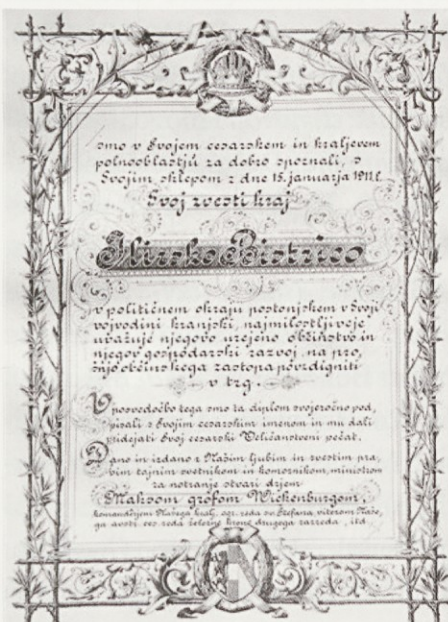 smo v Svojem cesarskem in kraljevem
polnooblastju za dobro spoznali, s
Svojim sklepom z dne 15. januarja 1911. l.
Svoj zvesti kraj
Ilirsko Bistrico
v političnem okraju postonjskem v Svoji
vojvodini kranjski, najmilostljiveje
uvažuje njegovo urejeno občinstvo in
njegov gospodarski razvoj, na pro,
šnjo občinskega zastopa povzdigniti
v trg.
V posvedočbo tega smo ta diplom svojeročno pod,
pisali s Svojim cesarskim imenom in mu dali
pridejati Svoj cesarski Veličanstveni pečat.
Dano in izdano z Našim ljubim in zvestim pra,
vim tajnim svetnikom in komornikom, ministrom
za notranje stvari drjem
Maksom grofom Wickenburgom,
komandérjem Našega kralj. ogr. reda sv. Štefana, vitezom Naše,
ga avstr. ces. reda železne krone drugega razreda, itd.